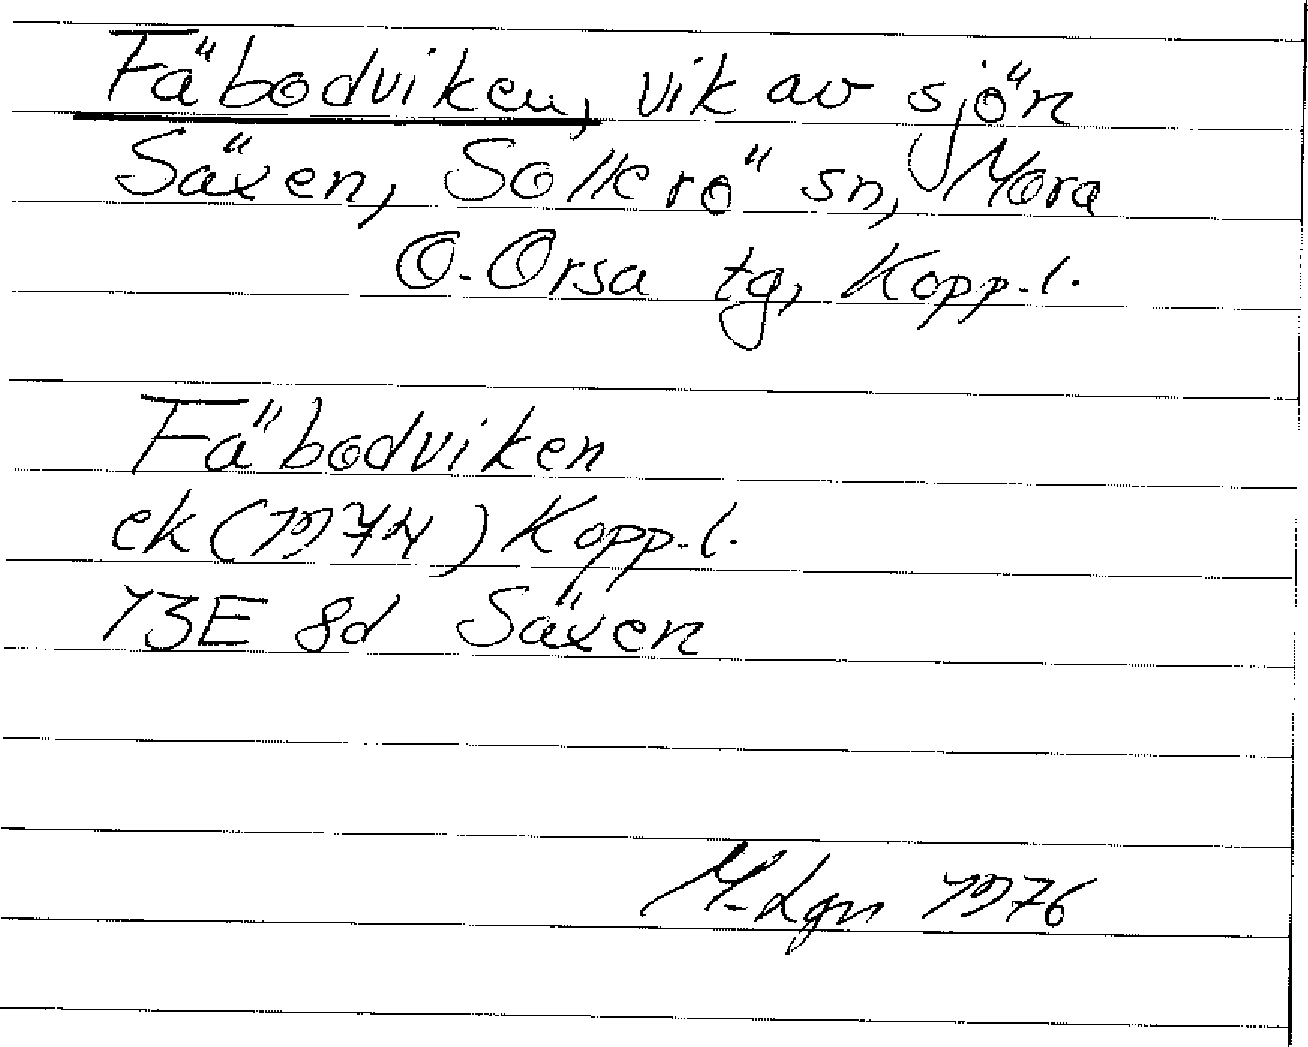 Fäbodviken, vik av sjön
Säxen, Sollerö sn, Mora
O. Orsa tg, Kopp. l.
Fäbodviken
ek (1974) Kopp. l.
13E 8d Säxen
M. Lgn 1976